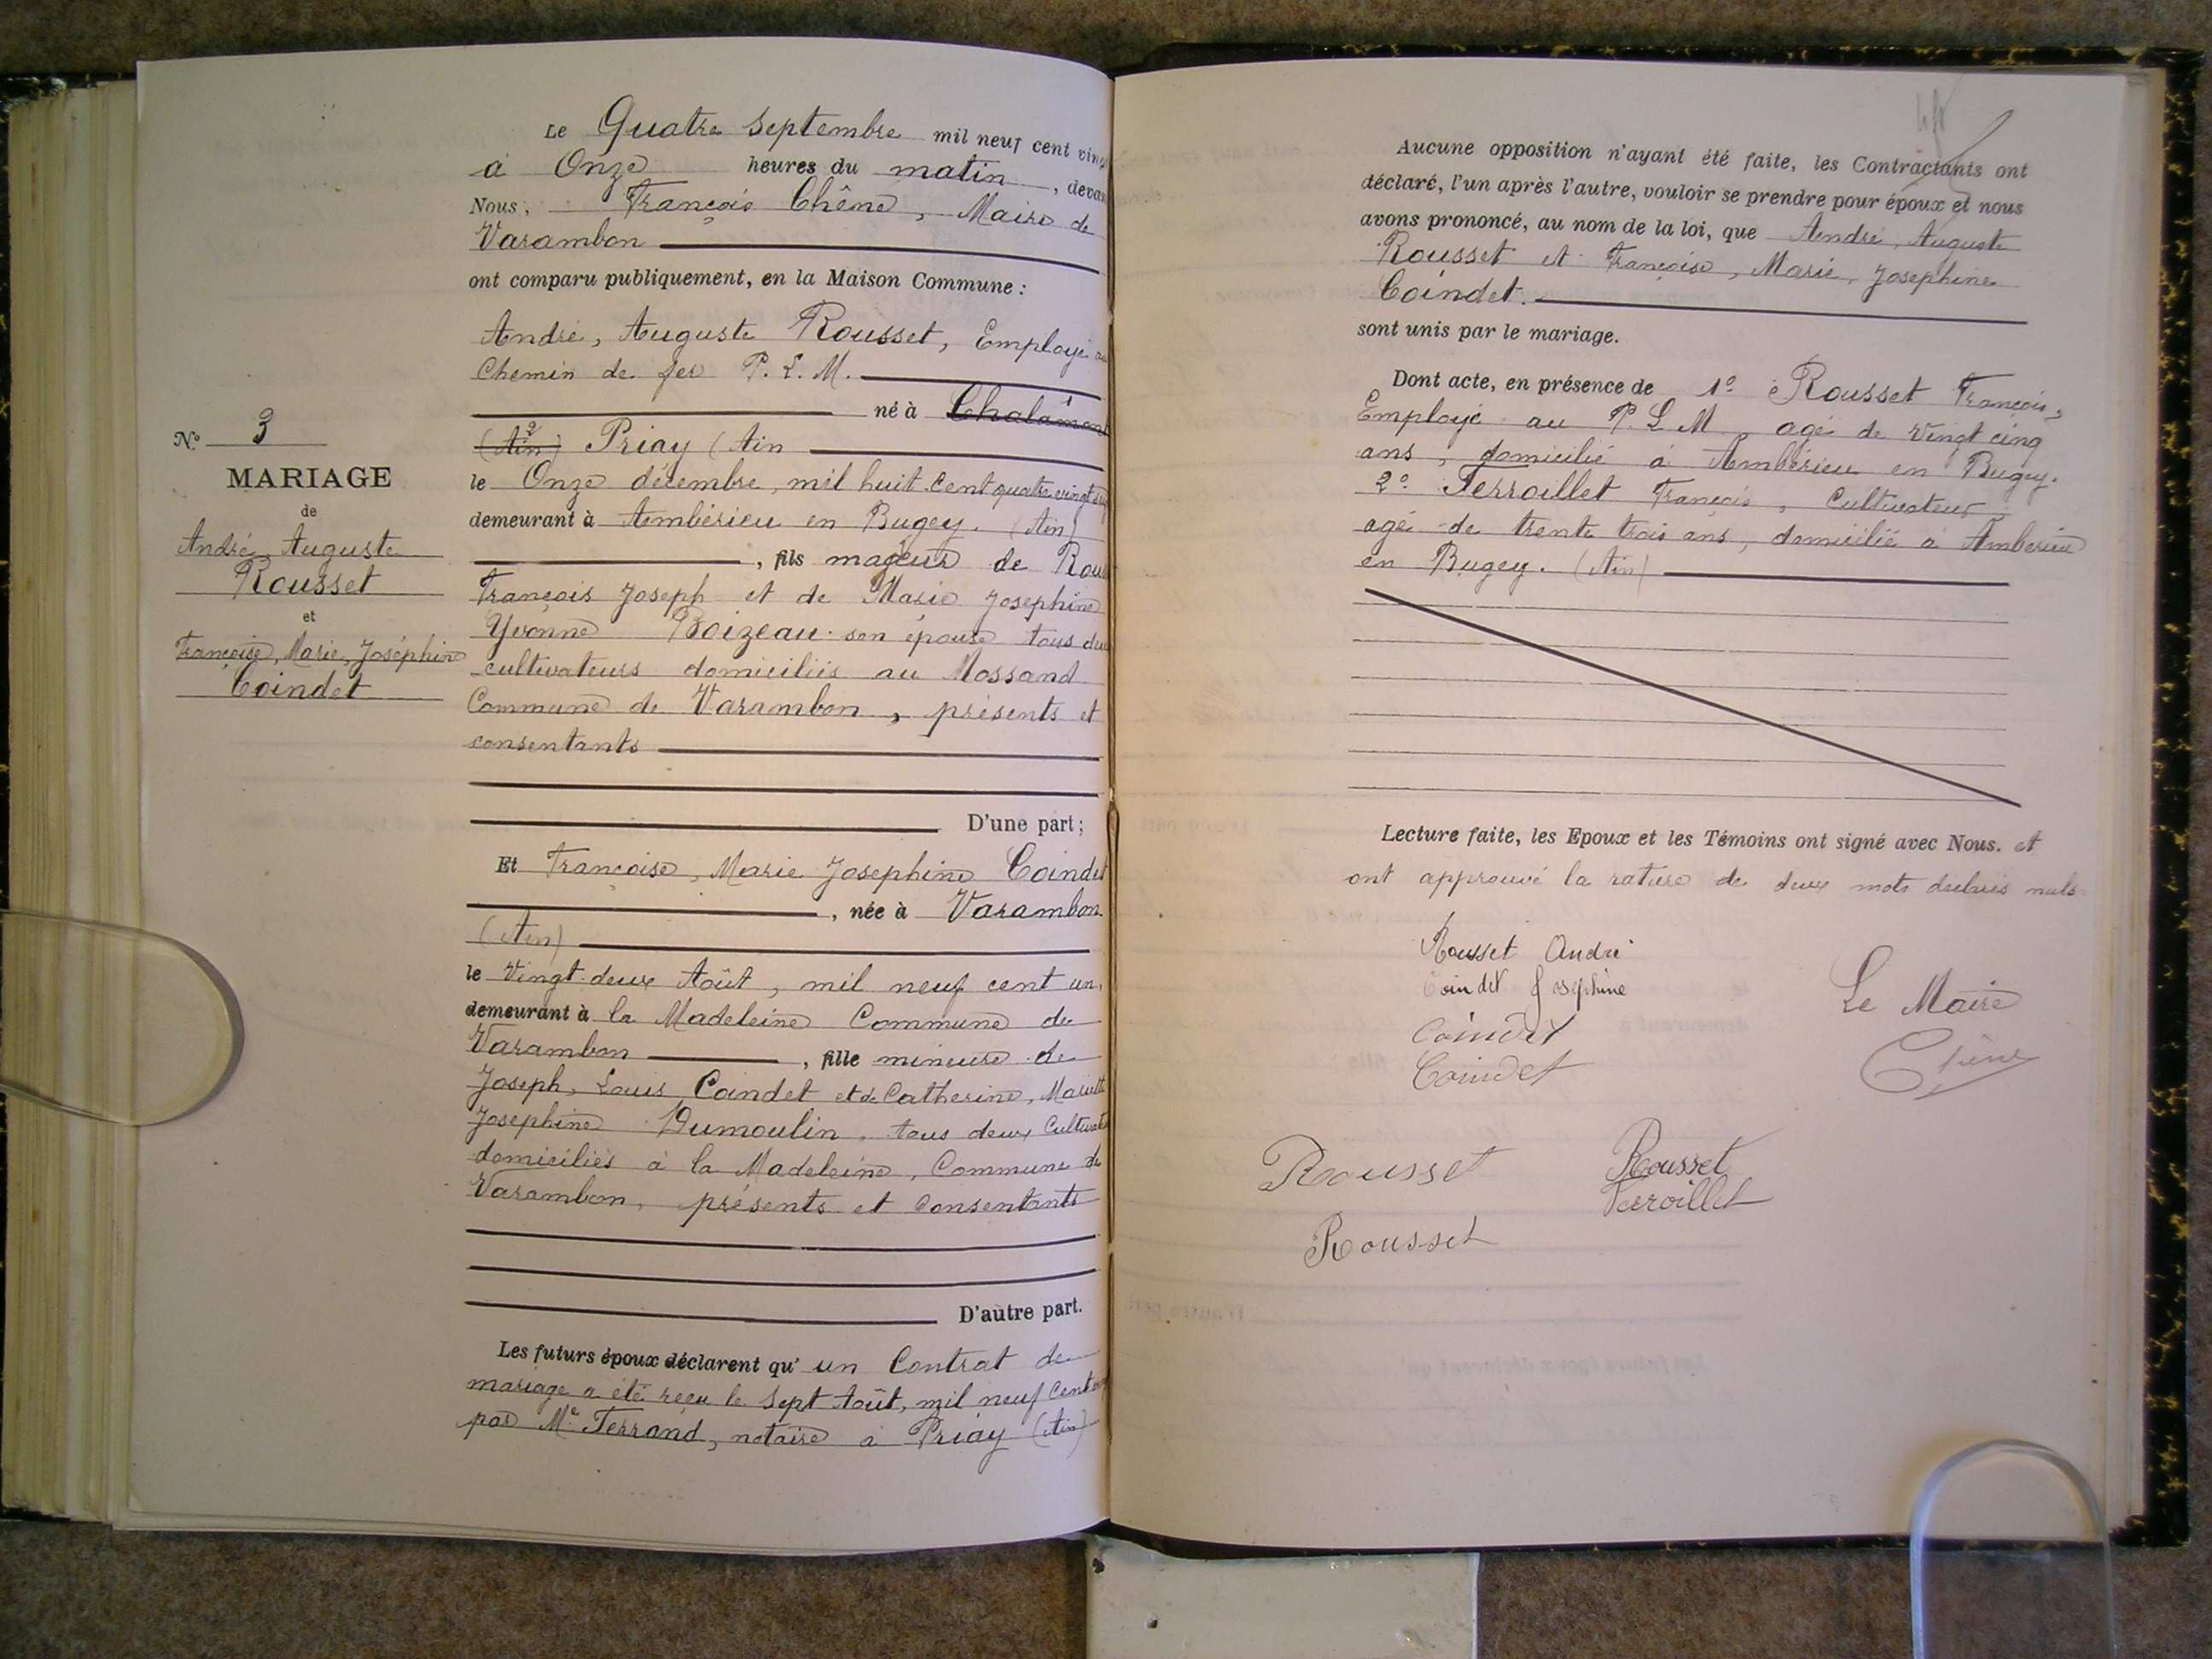 Le Quatre Septembre mil neuf cent vingt
à Onze heures du matin, devan
Nous, François Chêne, Maire de
Varambon
ont comparu publiquement, en la Maison Commune :
André, Auguste Rousset, Employé au
Chemin de fer P. L. M.
né à Chalamont
(Ain) Priay (Ain
le Onze décembre, mil huit cent quatre vingt
demeurant à Ambérieu en Bugey. (Ain)
, fils majeur de Rous
François Joseph et de Marie Josephine
Yvonne Boizeau son épouse tous deu
cultivateurs domiciliés au Mossand
Commune de Varambon, présents et
consentants
D'une part ;
Nº 3
MARIAGE
de
André, Auguste
Rousset
et
Françoise, Marie, Joséphine
Coindet
Et Françoise, Marie Josephine Coindet
, née à Varambon
(Ain)
le Vingt-deux Août, mil neuf cent un,
demeurant à la Madeleine Commune de
Varambon, fille mineure de
Joseph, Louis Coindet et de Catherine, Mariette
Josephine Dumoulin, tous deux Cultivate
domiciliés à la Madeleine, Commune de
Varambon, présents et Consentants
D'autre part.
Les futurs époux déclarent qu' un Contrat de
mariage a été reçu le Sept Août, mil neuf Cent
par Me Ferrand, notaire à Priay (Ain)
Aucune opposition n'ayant été faite, les Contractants ont
déclaré, l'un après l'autre, vouloir se prendre pour époux et nous
avons prononcé, au nom de la loi, que André, Auguste
Rousset et Françoise, Marie, Josephine
Coindet.
sont unis par le mariage.
Dont acte, en présence de 1º Rousset François,
Employé au P. L M. agé de Vingt cinq
ans, domicilié à Ambérieu en Bugey.
2º Ferroillet François, Cultivateur,
agé de trente trois ans, domicilié à Amberieu
en Bugey. (Ain)
Lecture faite, les Epoux et les Témoins ont signé avec Nous. et
ont approuvé la rature de deux mots declarés nuls
Rousset André
Coindet Josephine
Coindet
Coindet
Le Maire
Chêne
Rousset
Rousset
Ferroillet
Rousset